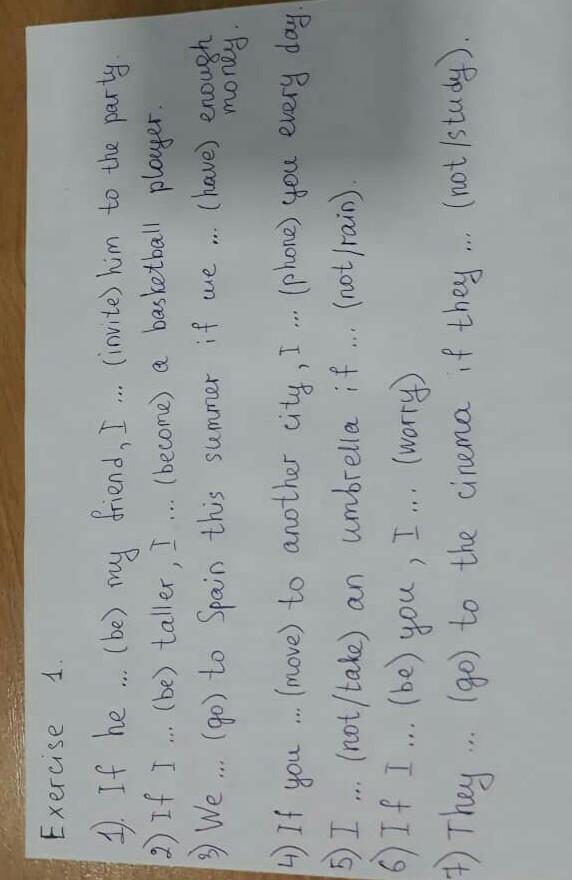 Exercise 1.
1). If he ... (be) my friend, I ... (invite) him to the party.
2) If I ... (be) taller, I ... (become) a basketball player.
3) We ... (go) to Spain this summer if we ... (have) enough
money.
4) If you ... (move) to another city, I ... (phone) you every day.
5) I ... (not/take) an umbrella if ... (not/rain).
6) If I ... (be) you, I ... (worry)
7) They ... (go) to the cinema if they ... (not/study).